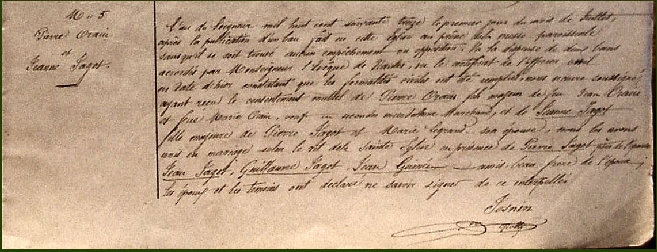 M. n° 5
Pierre Orain
et
Jeanne Jagot.
L'an du Seigneur mil huit cent soixante treize le premier jour du mois de Juillet,
après la publication d'un ban fait en cette église au prône de la messe paroissiale
sans qu'il se soit trouvé aucun empêchement ou opposition. Vu la dispense de deux bans
accordée par Monseigneur l'évêque de Nantes, vu le certificat de l'officier civil
en date d'hier constatant que les formalités civiles ont été remplies, nous soussigné
ayant reçu le consentement mutuel de Pierre Orain fils majeur de feu Jean Orain
et feue Marie Orain, veuf en secondes et de Jeanne Jagot
fille majeure de Pierre Jagot et Marie Legrand, son épouse, nous les avons
unis en mariage selon le rit de la Sainte Eglise en présence de Pierre Jagot père de l'épouse
Jean Jagot, Guillaume Jagot, Jean amis, beau frère de l'époux
les époux et les témoins ont déclaré ne savoir signer de ce interpellés.